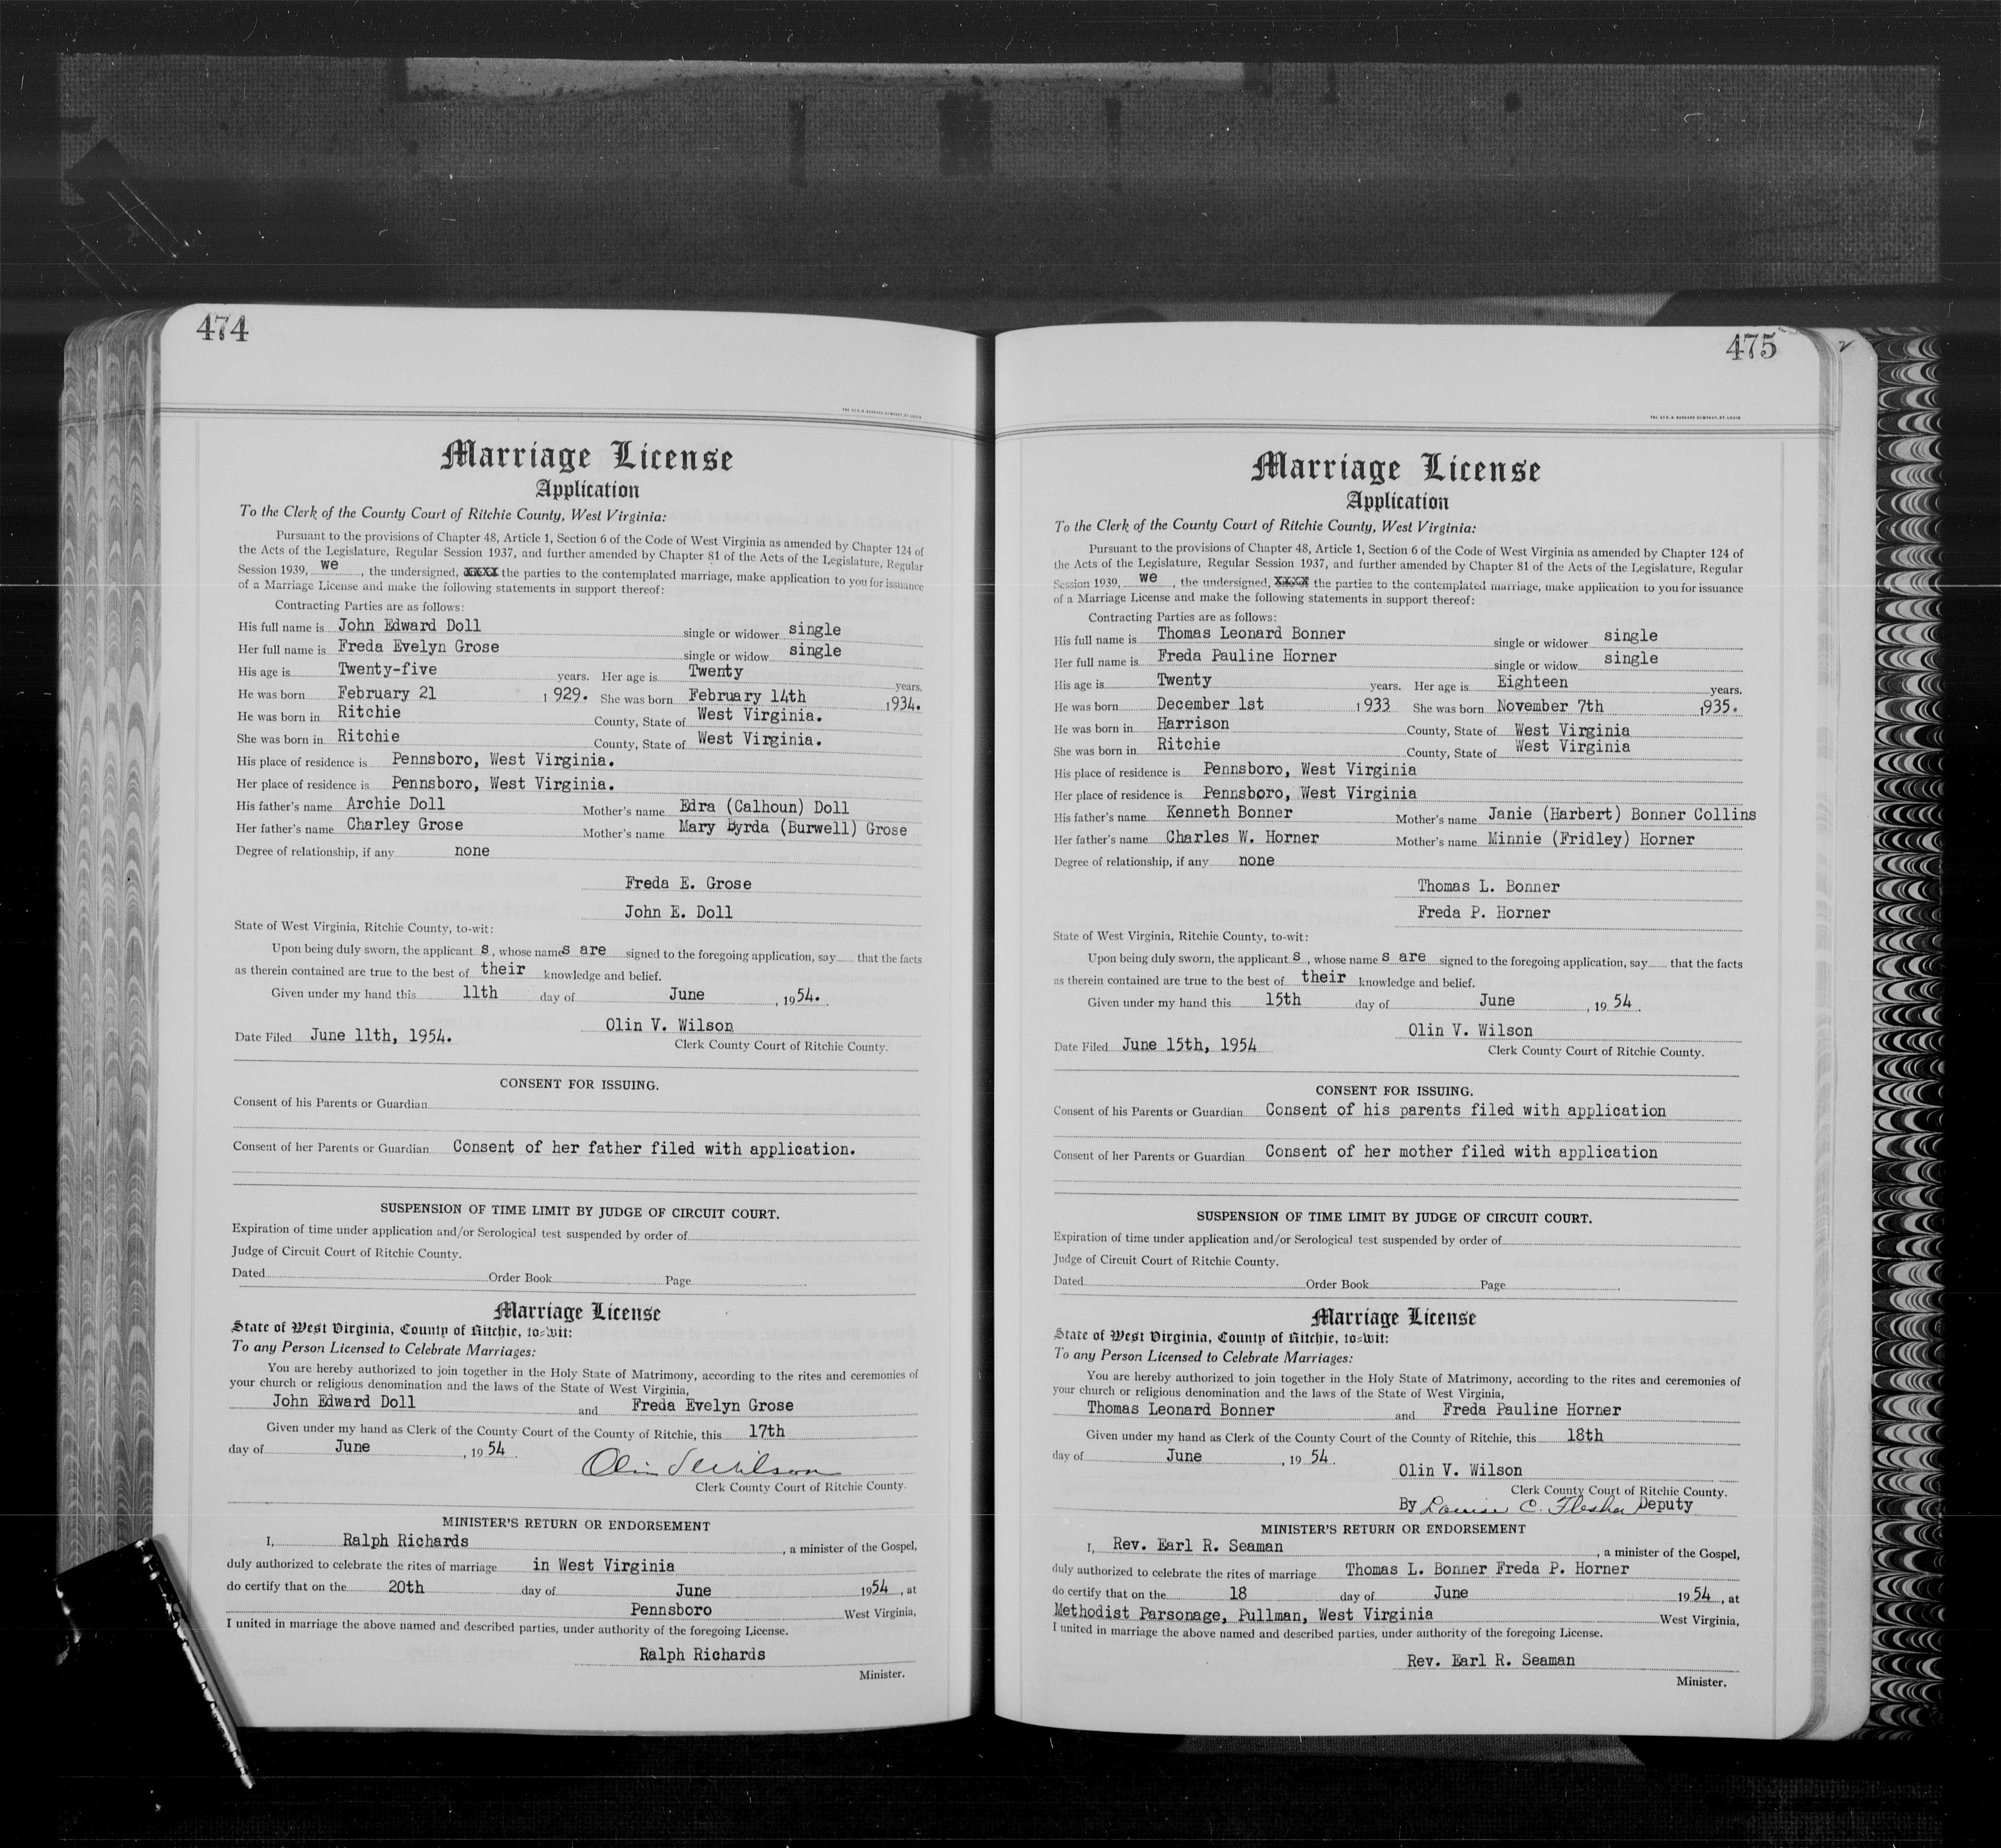 474
THE GEO. D. BARNARD COMPANY, ST. LOUIS
Marriage License
Application
To the Clerk of the County Court of Ritchie County, West Virginia:
Pursuant to the provisions of Chapter 48, Article 1, Section 6 of the Code of West Virginia as amended by Chapter 124 of
the Acts of the Legislature, Regular Session 1937, and further amended by Chapter 81 of the Acts of the Legislature, Regular
Session 1939, we, the undersigned, xxxx the parties to the contemplated marriage, make application to you for issuance
of a Marriage License and make the following statements in support thereof:
Contracting Parties are as follows:
His full name is John Edward Doll single or widower single
Her full name is Freda Evelyn Grose single or widow single
His age is Twenty-five years. Her age is Twenty years.
He was born February 21 1929. She was born February 14th 1934.
He was born in Ritchie County, State of West Virginia.
She was born in Ritchie County, State of West Virginia.
His place of residence is Pennsboro, West Virginia.
Her place of residence is Pennsboro, West Virginia.
His father's name Archie Doll Mother's name Edra (Calhoun) Doll
Her father's name Charley Grose Mother's name Mary Byrda (Burwell) Grose
Degree of relationship, if any none
Freda E. Grose
John E. Doll
State of West Virginia, Ritchie County, to-wit:
Upon being duly sworn, the applicant s, whose names are signed to the foregoing application, say that the facts
as therein contained are true to the best of their knowledge and belief.
Given under my hand this 11th day of June, 1954.
Olin V. Wilson
Date Filed June 11th, 1954. Clerk County Court of Ritchie County.
CONSENT FOR ISSUING.
Consent of his Parents or Guardian
Consent of her Parents or Guardian Consent of her father filed with application.
SUSPENSION OF TIME LIMIT BY JUDGE OF CIRCUIT COURT.
Expiration of time under application and/or Serological test suspended by order of
Judge of Circuit Court of Ritchie County.
Dated Order Book Page
Marriage License
State of West Virginia, County of Ritchie, to-wit:
To any Person Licensed to Celebrate Marriages:
You are hereby authorized to join together in the Holy State of Matrimony, according to the rites and ceremonies of
your church or religious denomination and the laws of the State of West Virginia,
John Edward Doll and Freda Evelyn Grose
Given under my hand as Clerk of the County Court of the County of Ritchie, this 17th
day of June, 1954
Olin V Wilson
Clerk County Court of Ritchie County.
MINISTER'S RETURN OR ENDORSEMENT
I, Ralph Richards, a minister of the Gospel,
duly authorized to celebrate the rites of marriage in West Virginia
do certify that on the 20th day of June 1954, at
Pennsboro West Virginia,
I united in marriage the above named and described parties, under authority of the foregoing License.
Ralph Richards
Minister.
475
THE GEO. D. BARNARD COMPANY, ST. LOUIS
Marriage License
Application
To the Clerk of the County Court of Ritchie County, West Virginia:
Pursuant to the provisions of Chapter 48, Article 1, Section 6 of the Code of West Virginia as amended by Chapter 124 of
the Acts of the Legislature, Regular Session 1937, and further amended by Chapter 81 of the Acts of the Legislature, Regular
Session 1939, we, the undersigned, xxxx the parties to the contemplated marriage, make application to you for issuance
of a Marriage License and make the following statements in support thereof:
Contracting Parties are as follows:
His full name is Thomas Leonard Bonner single or widower single
Her full name is Freda Pauline Horner single or widow single
His age is Twenty years. Her age is Eighteen years.
He was born December 1st 1933 She was born November 7th 1935.
He was born in Harrison County, State of West Virginia
She was born in Ritchie County, State of West Virginia
His place of residence is Pennsboro, West Virginia
Her place of residence is Pennsboro, West Virginia
His father's name Kenneth Bonner Mother's name Janie (Harbert) Bonner Collins
Her father's name Charles W. Horner Mother's name Minnie (Fridley) Horner
Degree of relationship, if any none
Thomas L. Bonner
Freda P. Horner
State of West Virginia, Ritchie County, to-wit:
Upon being duly sworn, the applicant s, whose name s are signed to the foregoing application, say that the facts
as therein contained are true to the best of their knowledge and belief.
Given under my hand this 15th day of June, 1954.
Olin V. Wilson
Date Filed June 15th, 1954 Clerk County Court of Ritchie County.
CONSENT FOR ISSUING.
Consent of his Parents or Guardian Consent of his parents filed with application
Consent of her Parents or Guardian Consent of her mother filed with application
SUSPENSION OF TIME LIMIT BY JUDGE OF CIRCUIT COURT.
Expiration of time under application and/or Serological test suspended by order of
Judge of Circuit Court of Ritchie County.
Dated Order Book Page
Marriage License
State of West Virginia, County of Ritchie, to-wit:
To any Person Licensed to Celebrate Marriages:
You are hereby authorized to join together in the Holy State of Matrimony, according to the rites and ceremonies of
your church or religious denomination and the laws of the State of West Virginia,
Thomas Leonard Bonner and Freda Pauline Horner
Given under my hand as Clerk of the County Court of the County of Ritchie, this 18th
day of June, 1954.
Olin V. Wilson
Clerk County Court of Ritchie County.
By Louise C. Flesher Deputy
MINISTER'S RETURN OR ENDORSEMENT
I, Rev. Earl R. Seaman, a minister of the Gospel,
duly authorized to celebrate the rites of marriage Thomas L. Bonner Freda P. Horner
do certify that on the 18 day of June 1954, at
Methodist Parsonage, Pullman, West Virginia West Virginia,
I united in marriage the above named and described parties, under authority of the foregoing License.
Rev. Earl R. Seaman
Minister.